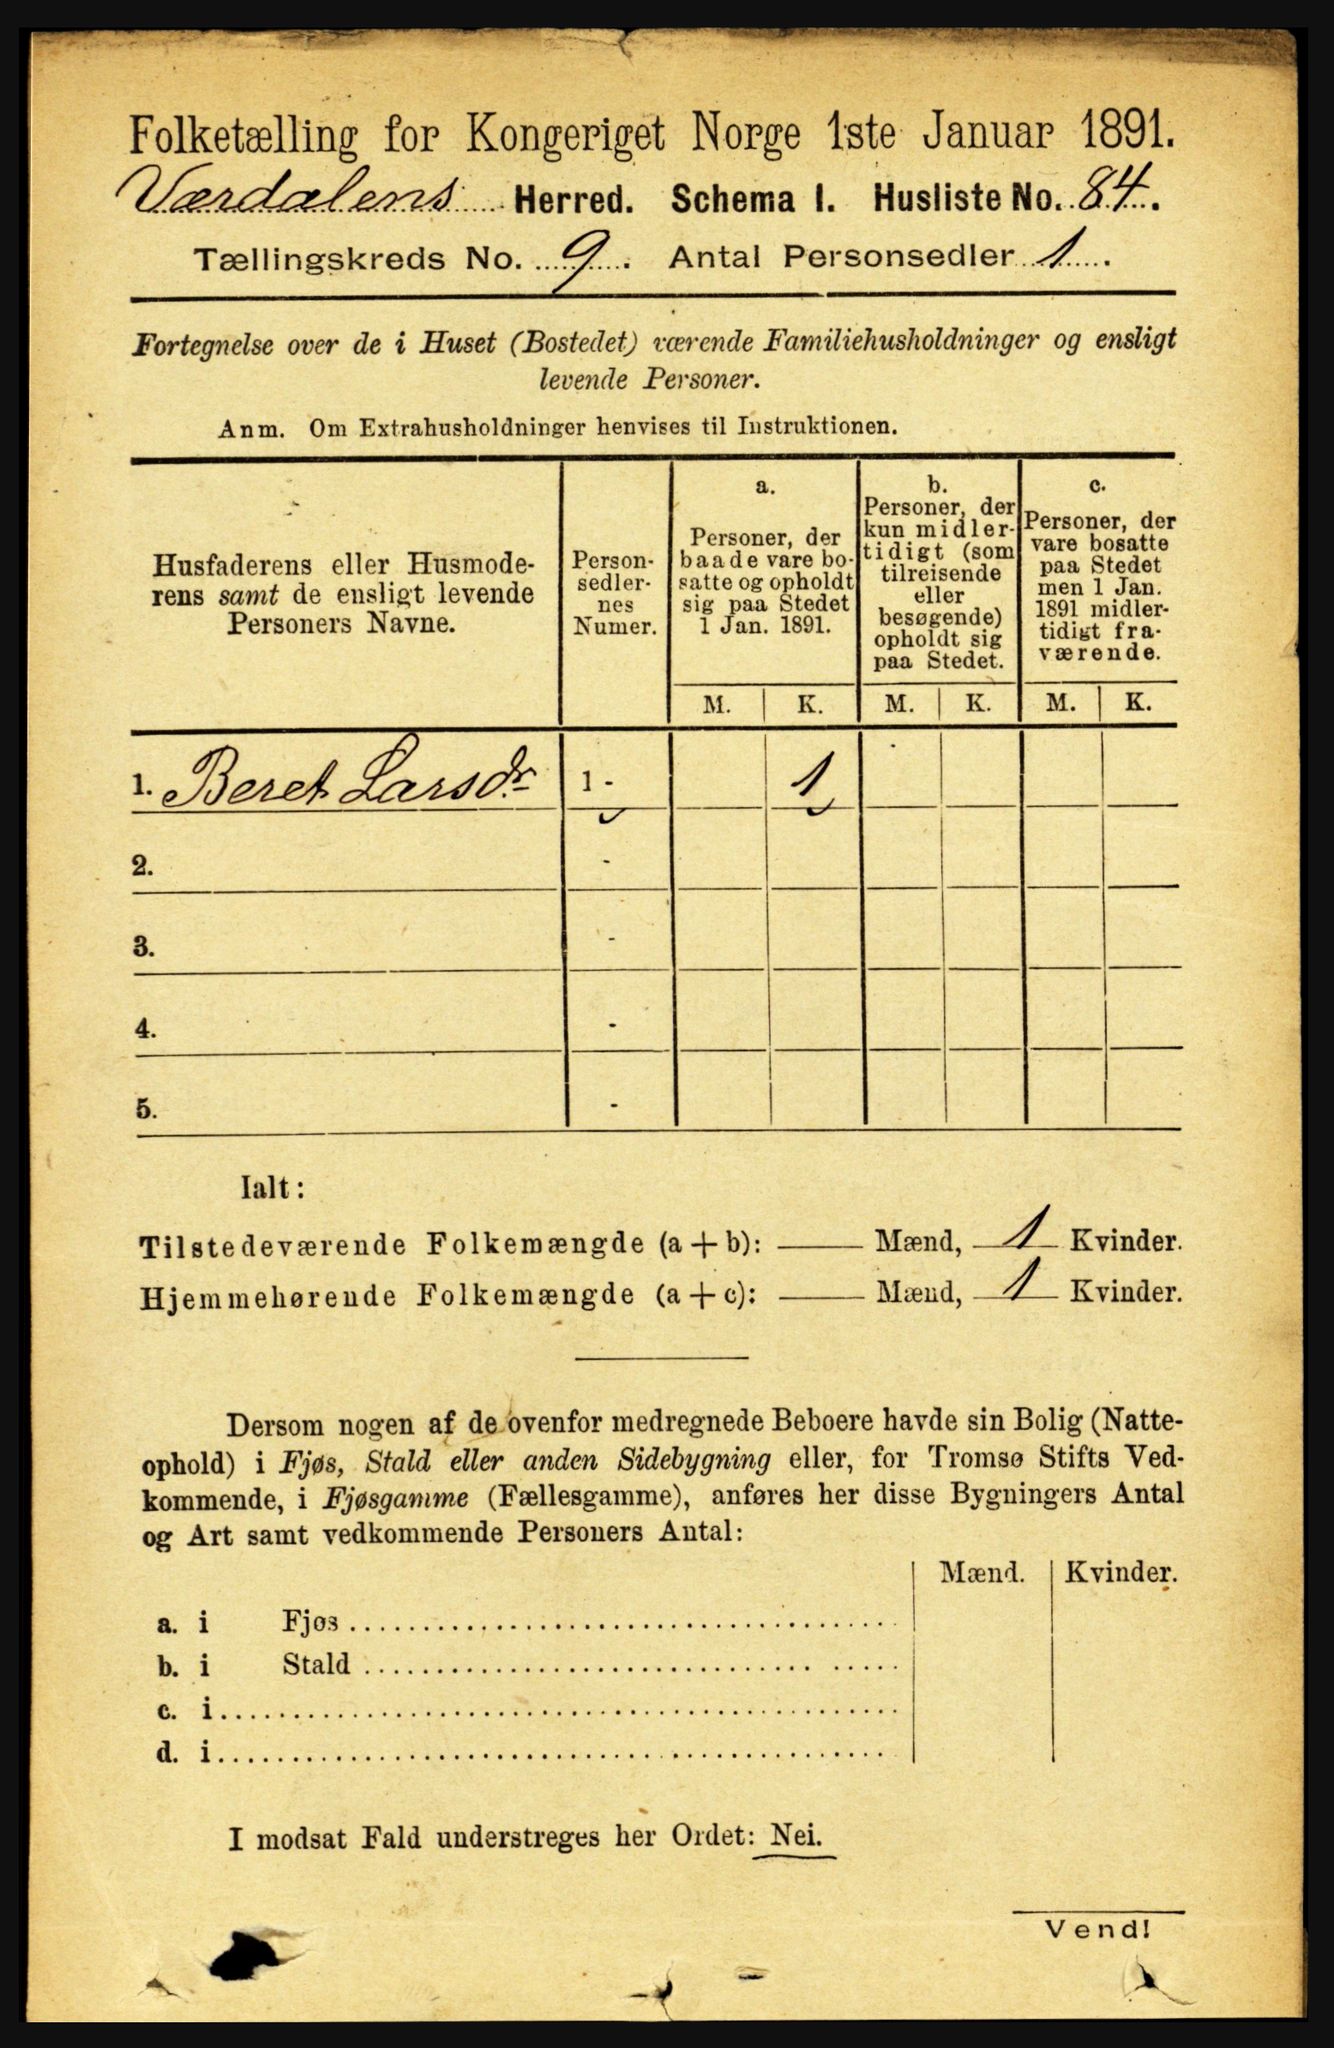 Folketælling for Kongeriget Norge 1ste Januar 1891.
Værdalens Herred. Schema I. Husliste No. 84.
Tællingskreds No. 9. Antal Personsedler 1.
Fortegnelse over de i Huset (Bostedet) værende Familiehusholdninger og ensligt
levende Personer.
Anm. Om Extrahusholdninger henvises til Instruktionen.
Husfaderens eller Husmode-
rens samt de ensligt levende
Personers Navne.
Person-
sedler-
nes
Numer.
a.
Personer, der
baade vare bo-
satte og opholdt
sig paa Stedet
1 Jan. 1891.
b.
Personer, der
kun midler-
tidigt (som
tilreisende
eller
besøgende)
opholdt sig
paa Stedet.
c.
Personer, der
vare bosatte
paa Stedet
men 1 Jan.
1891 midler-
tidigt fra-
værende.
M. K. M. K. M. K.
1. Beret Larsdr. 1 - 1
2. -
3. -
4. -
5. -
Ialt:
Tilstedeværende Folkemængde (a + b): Mænd, 1 Kvinder.
Hjemmehørende Folkemængde (a + c): Mænd, 1 Kvinder.
Dersom nogen af de ovenfor medregnede Beboere havde sin Bolig (Natte-
ophold) i Fjøs, Stald eller anden Sidebygning eller, for Tromsø Stifts Ved-
kommende, i Fjøsgamme (Fællesgamme), anføres her disse Bygningers Antal
og Art samt vedkommende Personers Antal:
Mænd. Kvinder.
a. i Fjøs
b. i Stald
c. i
d. i
I modsat Fald understreges her Ordet: Nei.
Vend!